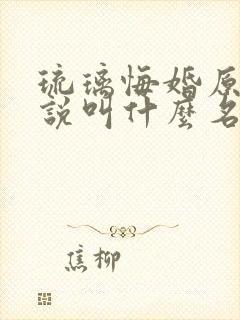 琉璃悔婚原
說叫什麼名
焦柳